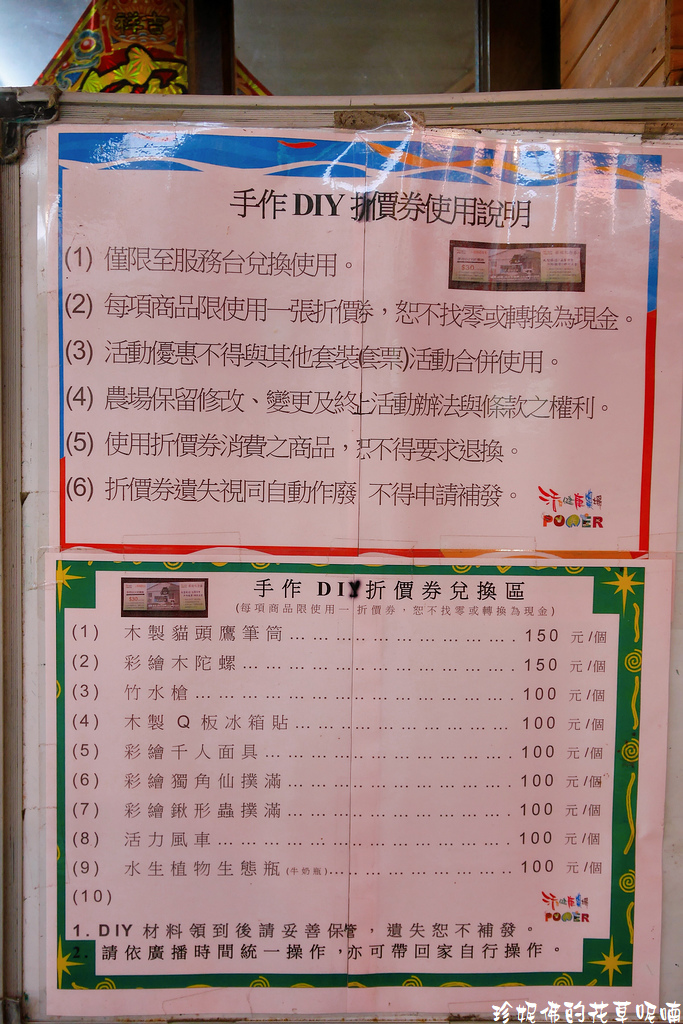 手作 DIY 折價券使用說明
(1) 僅限至服務台兌換使用。
(2) 每項商品限使用一張折價券，恕不找零或轉換為現金。
(3) 活動優惠不得與其他套裝(套票)活動合併使用。
(4) 農場保留修改、變更及終止活動辦法與條款之權利。
(5) 使用折價券消費之商品，恕不得要求退換。
(6) 折價券遺失視同自動作廢 不得申請補發。
POWER
手作 DIY 折價券兌換區
(每項商品限使用一 折價券，恕不找零或轉換為現金)
(1) 木製貓頭鷹筆筒……………………150 元/個
(2) 彩繪木陀螺……………………150 元/個
(3) 竹水槍……………………100 元/個
(4) 木製 Q 板冰箱貼……………………100 元/個
(5) 彩繪千人面具……………………100 元/個
(6) 彩繪獨角仙撲滿……………………100 元/個
(7) 彩繪鍬形蟲撲滿……………………100 元/個
(8) 活力風車……………………100 元/個
(9) 水生植物生態瓶(牛奶瓶)……………………100 元/個
(10)
POWER
1. DIY 材料領到後請妥善保管，遺失恕不補發。
2. 請依廣播時間統一操作，亦可帶回家自行操作。
珍妮佛的花草呢喃